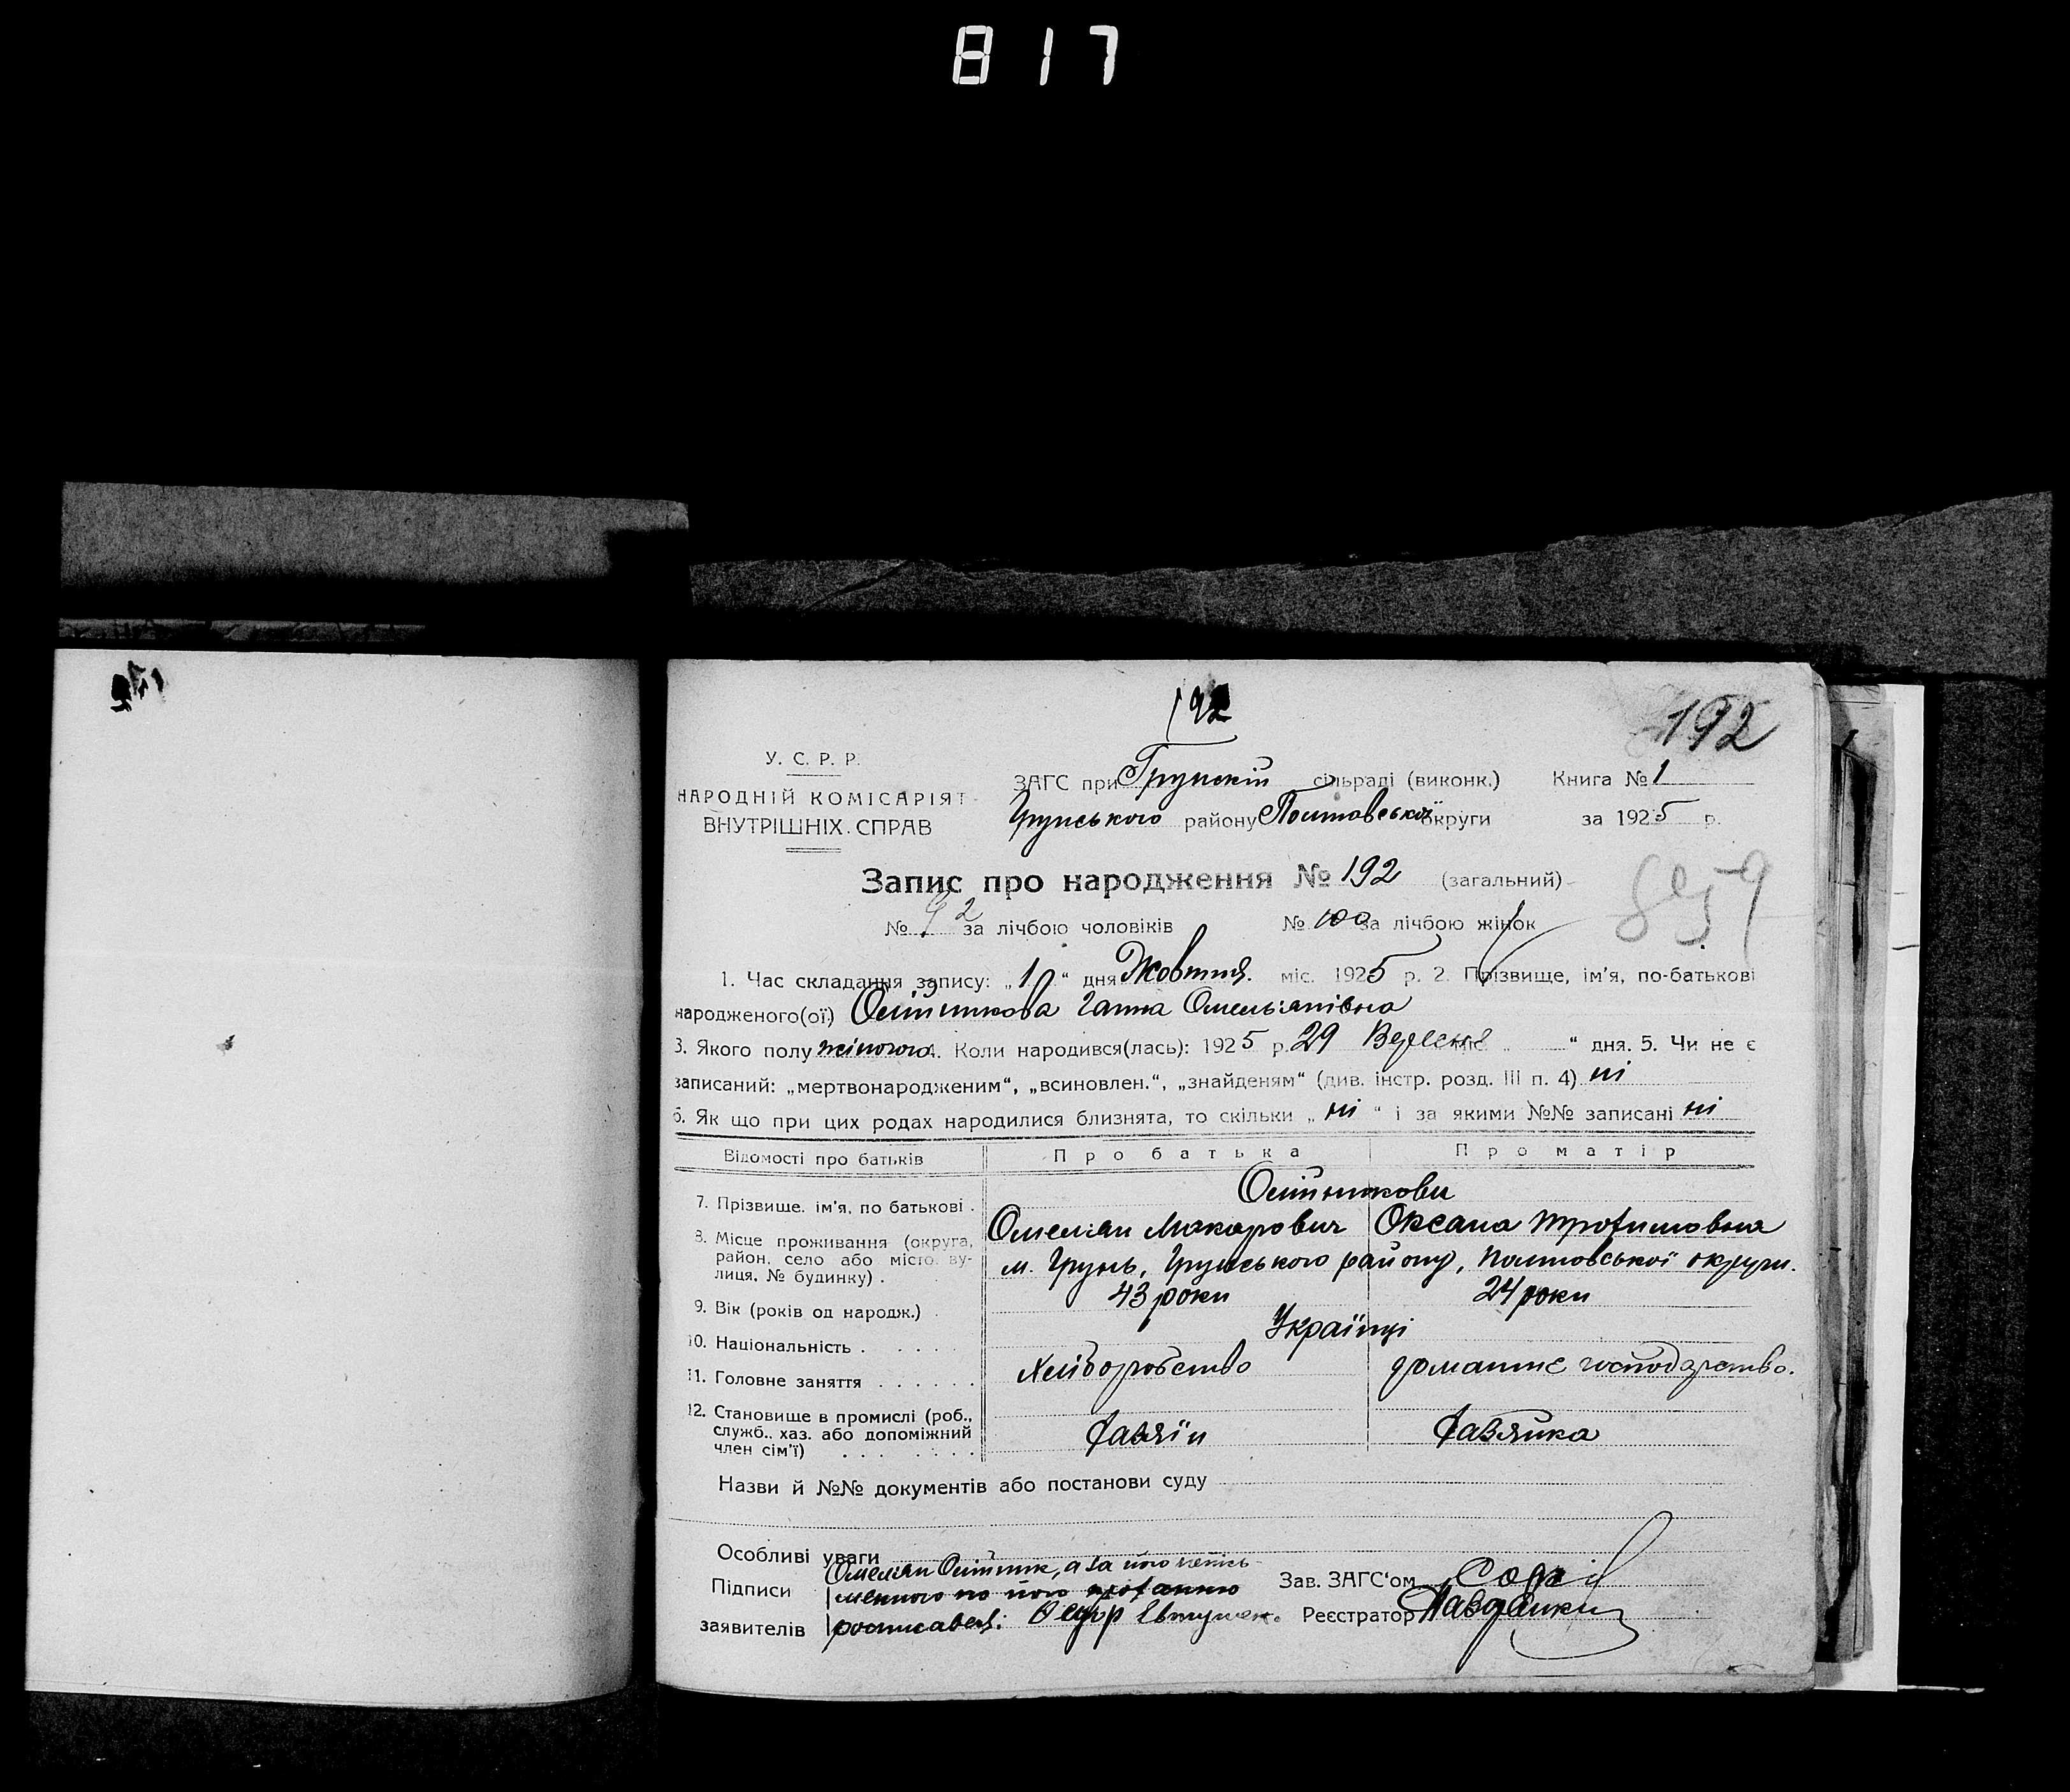 817
192
192
У. С. Р. Р.
НАРОДНІЙ КОМІСАРІЯТ
ВНУТРІШНІХ СПРАВ
ЗАГС при Грунскій сільраді (виконк.) Книга № 1
Грунського району Полтавської округи за 1925 р.
Запис про народження № 192 (загальний)
8959
№ 92 за лічбою чоловіків № 100 за лічбою жінок
1. Час складання запису: „10“ дня Жовтня міс. 1925 р. 2. Прізвище, ім'я, по-батькові
народженого(ої) Олійникова Ганна Омельянівна
3. Якого полу жіночого 4. Коли народився(лась): 1925 р. 29 Вересня міс. „ “ дня. 5. Чи не є
записаний: „мертвонародженим“, „всиновлен.“, „знайденям“ (див. інстр. розд. III п. 4) ні
6. Як що при цих родах народилися близнята, то скільки „ ні “ і за якими №№ записані ні
Відомості про батьків Про батька Про матір
7. Прізвище, ім'я, по батькові . Олійникови
Омелян Макарович Оксана Трофимовна
8. Місце проживання (округа,
район, село або місто ву-
лиця, № будинку) . м. Грунь, Грунського району, Полтовської округи.
9. Вік (років од народж.) . 43 роки 24 роки
10. Національність . . . . Українці
11. Головне заняття . . . . . . Хліборобство домашнє господарство.
12. Становище в промислі (роб.,
служб., хаз. або допоміжний
член сім'ї) . . . . . . . Хазяїн Хазяйка
Назви й №№ документів або постанови суду
Особливі уваги
Підписи
заявителів
Омелян Олійник, а за його непись-
менного по його проханню
росписався: Федор
Зав. ЗАГС'ом
Реєстратор